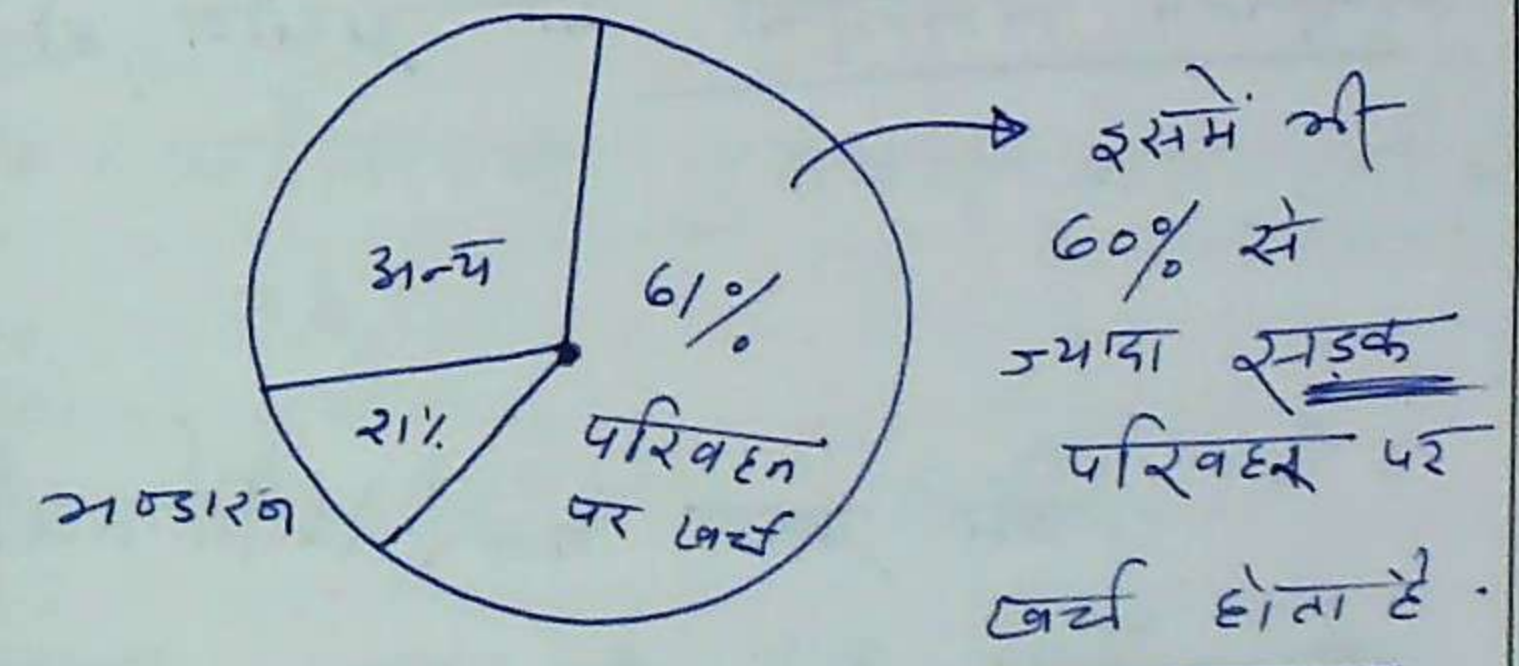 अन्य
61%
21%
परिवहन
पर खर्च
भण्डारन
इसमें भी
60% से
ज्यादा सड़क
परिवहन पर
खर्च होता है.